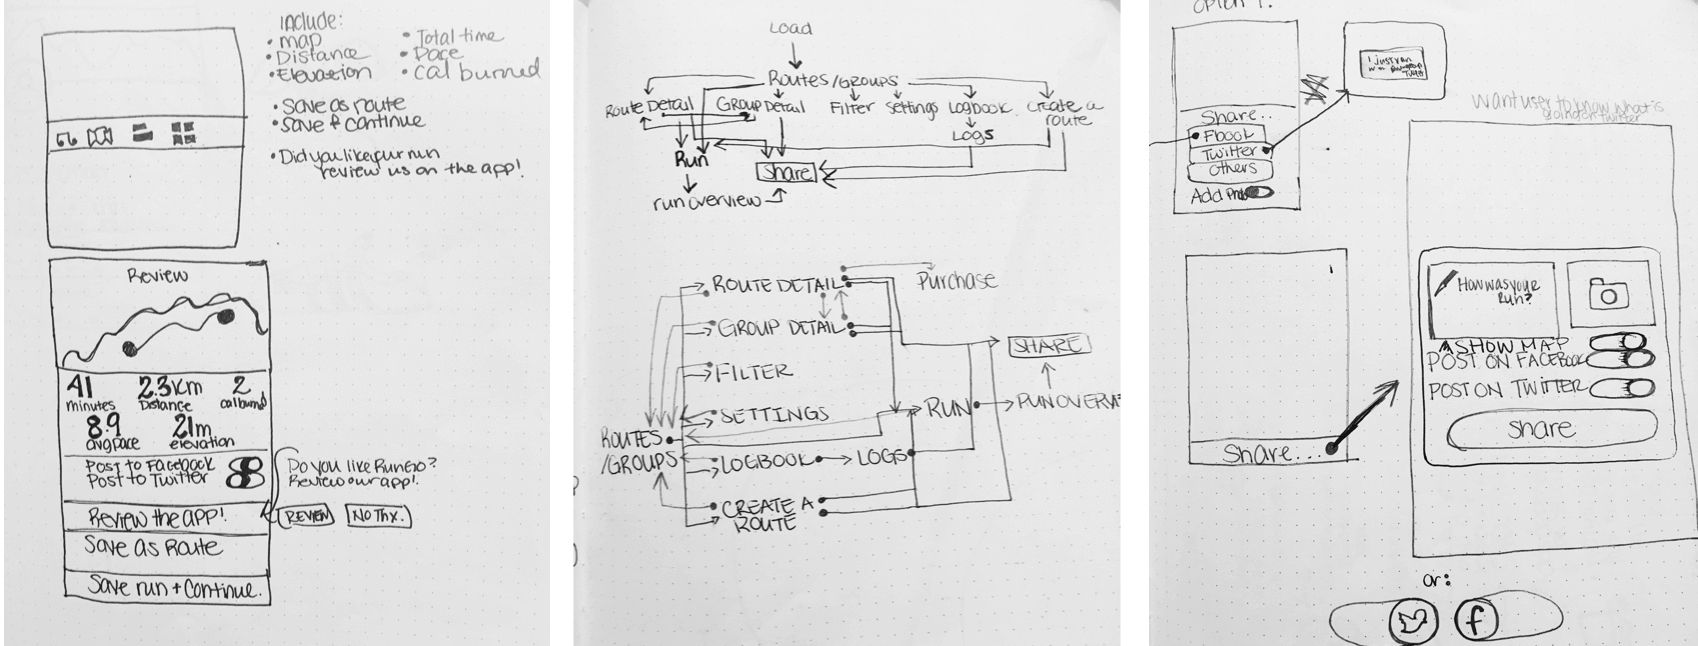 include:
• map
• Distance
• Elevation
• Total time
• Pace
• Cal burned
• Save as route
• Save & continue
• Did you like your run
review us on the app!
Review
41
minutes
2.3km
Distance
2
cal burnd
89
avg pace
21m
elevation
Post to Facebook
Post to Twitter
Do you like RunGo?
Review our app!
REVIEW
NO THX.
Review the app!
Save as Route
Save run + Continue.
Load
Routes/GROUPS
Route Detail
GROUP Detail
Filter
Settings
LOGBOOK
Create a
route
LOGS
Run
Share
run overview
ROUTE DETAIL
Purchase
GROUP DETAIL
SHARE
FILTER
SETTINGS
RUN
RUN OVERVI
ROUTES
/GROUPS
LOGBOOK
LOGS
CREATE A
ROUTE
OPTION 1.
I just ran
Share..
Fbook
Twitter
Others
Add
want user to know what is
going on twitter
How was your
Run?
SHOW MAP
POST ON FACEBOOK
POST ON TWITTER
Share
Share...
or:
f